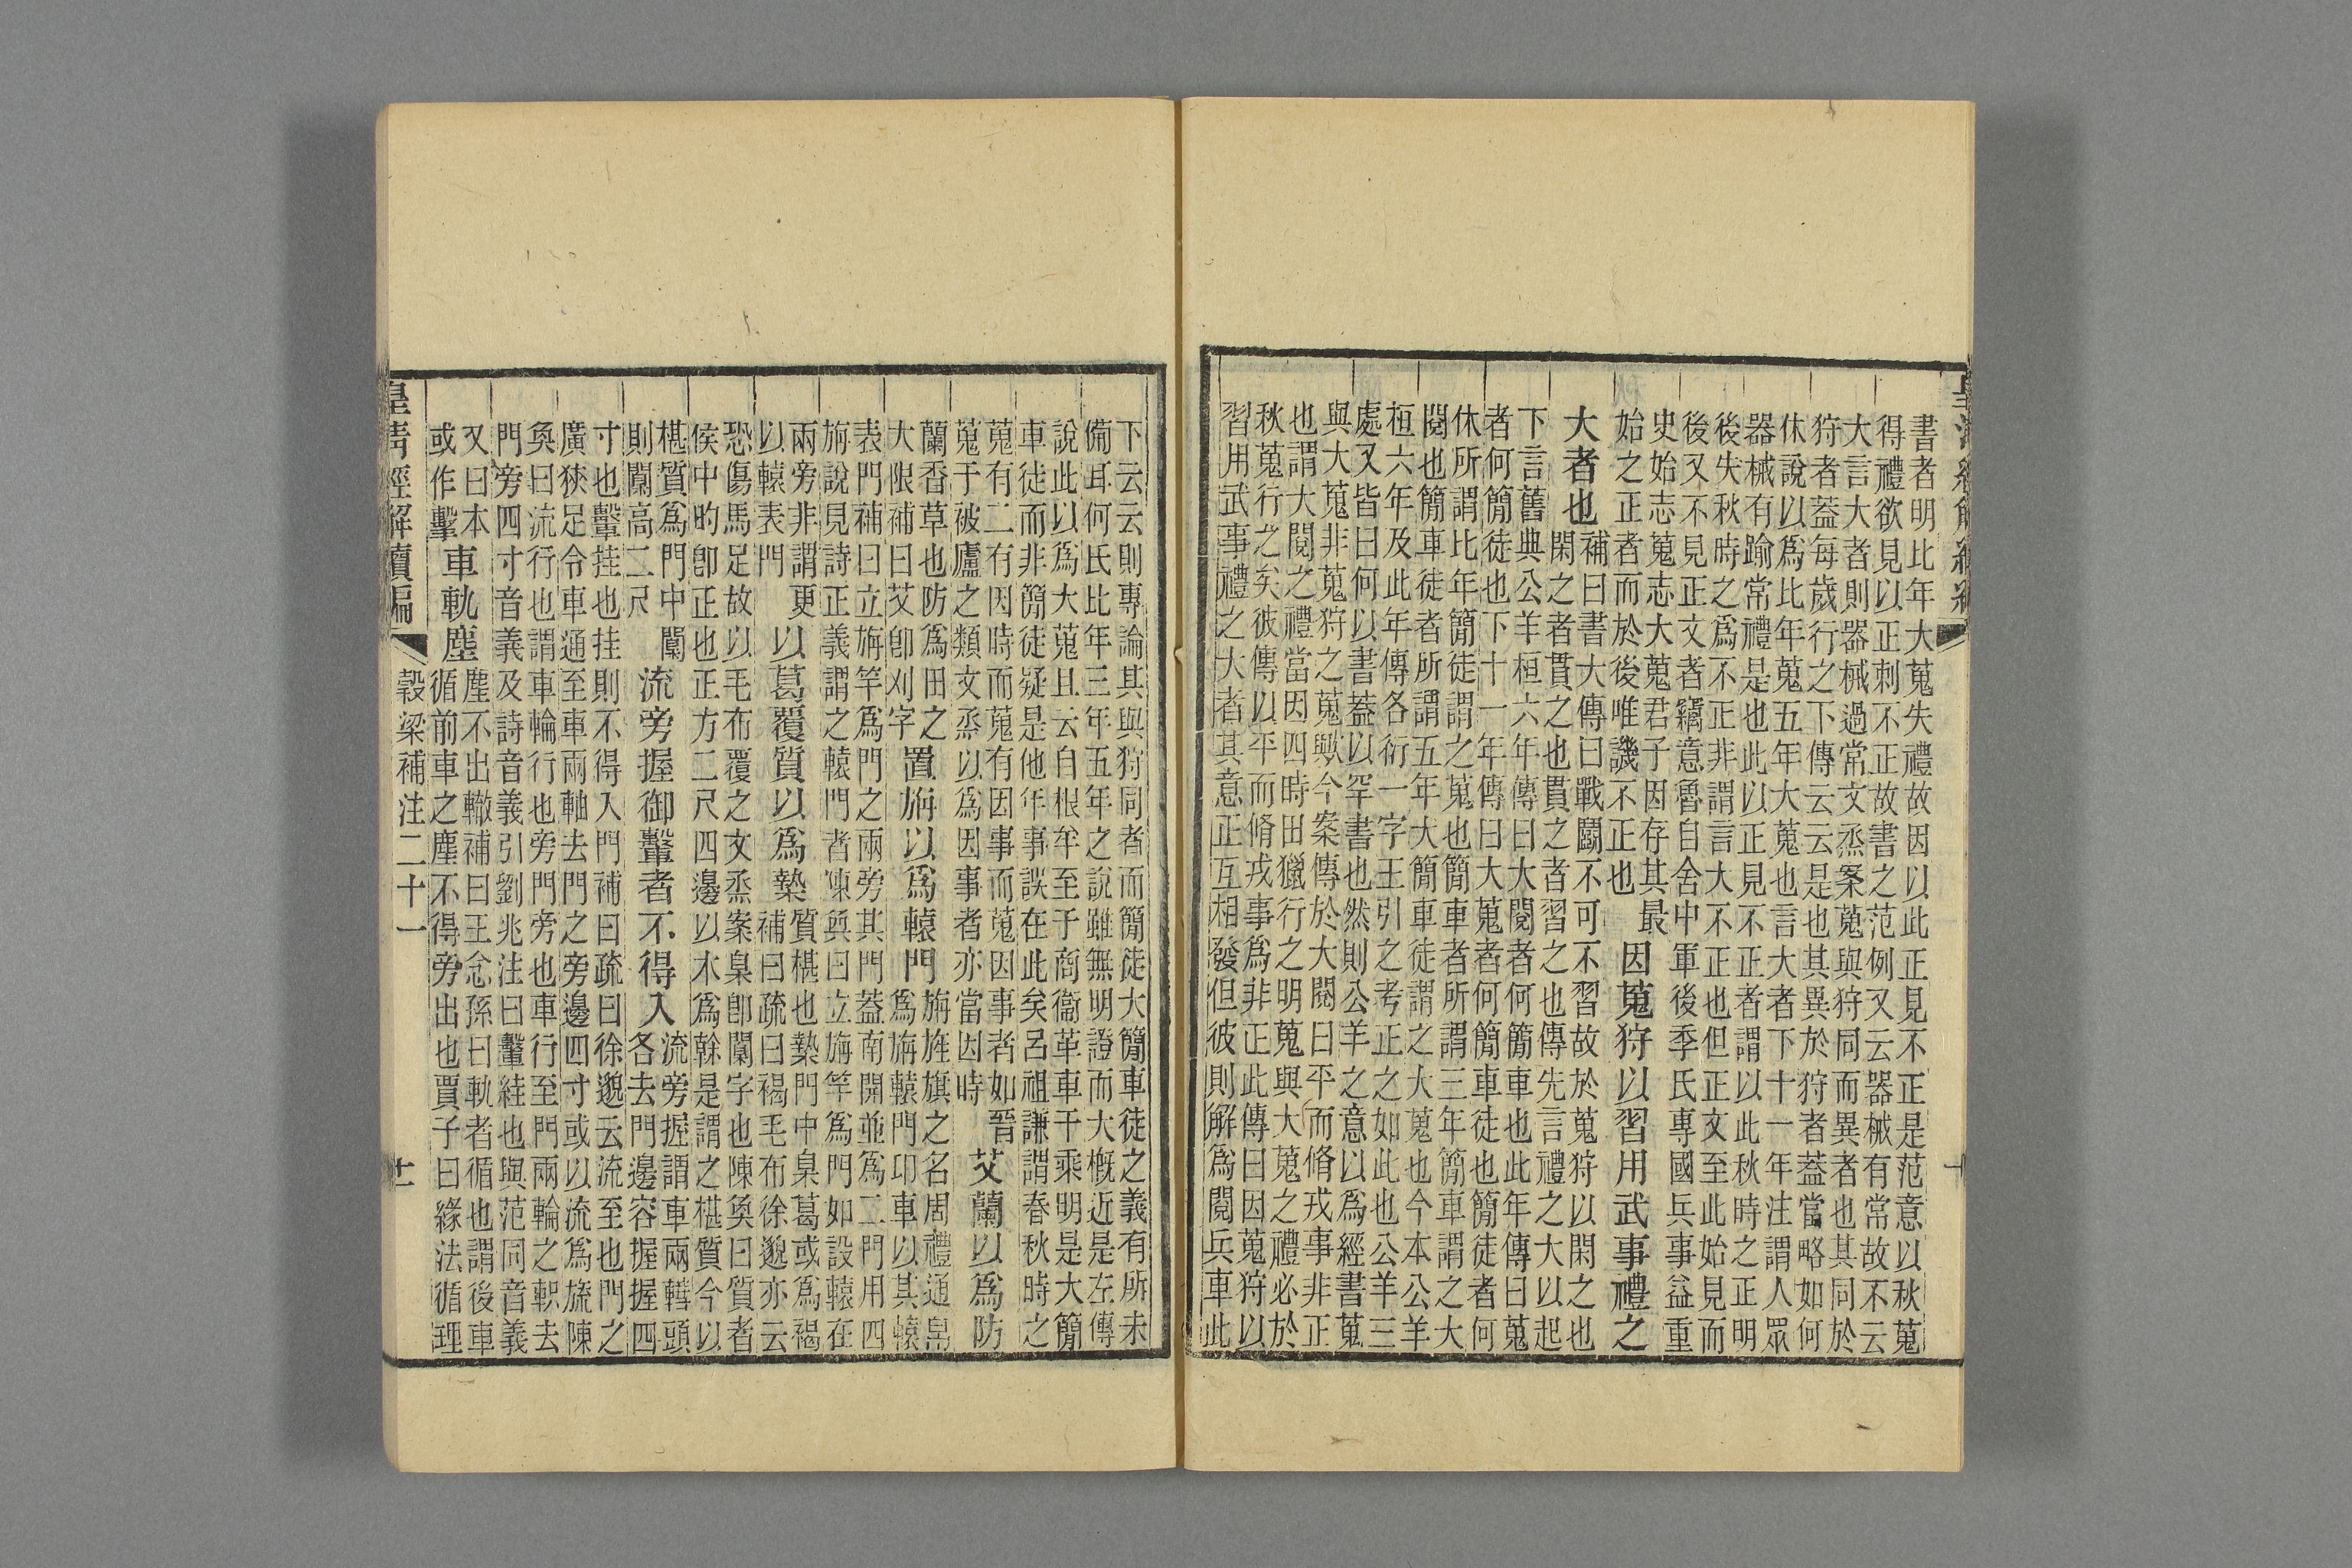 書者明比年大蒐失禮故因以此正見不正是范意以秋蒐
得禮欲見以正刺不正故書之范例又云器械有常故不云
大言大者則器械過常文烝案蒐與狩同而異者也其同於
狩者蓋每歲行之下傳云云是也其異於狩者蓋當略如何
休說以爲比年蒐五年大蒐也言大者下十一年注謂人眾
器械有踰常禮是也此以正見不正者謂以此秋時之正明
後失秋時之爲不正非謂言大不正也但正文至此始見而
後又不見正文者竊意魯自舍中軍後季氏專國兵事益重
史始志蒐志大蒐君子因存其最
始之正者而於後唯譏不正也
因蒐狩以習用武事禮之
大者也
補曰書大傳曰戰鬭不可不習故於蒐狩以閑之也
閑之者貫之也貫之者習之也傳先言禮之大以起
下言舊典公羊桓六年傳曰大閱者何簡車也此年傳曰蒐
者何簡徒也下十一年傳曰大蒐者何簡車徒也簡徒者何
休所謂比年簡徒謂之蒐也簡車者所謂三年簡車謂之大
閱也簡車徒者所謂五年大簡車徒謂之大蒐也今本公羊
桓六年及此年傳各衍一字王引之考正之如此也公羊三
處又皆曰何以書蓋以罕書也然則公羊之意以爲經書蒐
與大蒐非蒐狩之蒐歟今案傳於大閱曰平而脩戎事非正
也謂大閱之禮當因四時田獵行之明蒐與大蒐之禮必於
秋蒐行之矣彼傳以平而脩戎事爲非正此傳曰因蒐狩以
習用武事禮之大者其意正互相發但彼則解爲閱兵車此
下云云則專論其與狩同者而簡徒大簡車徒之義有所未
備耳何氏比年三年五年之說雖無明證而大槪近是左傳
說此以爲大蒐且云自根牟至于商衞革車千乘明是大簡
車徒而非簡徒疑是他年事誤在此矣呂祖謙謂春秋時之
蒐有二有因時而蒐有因事而蒐因事者如晉
蒐于被廬之類文烝以爲因事者亦當因時
艾蘭以爲防
蘭香草也防爲田之
大限補曰艾卽刈字
置旃以爲轅門
旃旌旗之名周禮通帛
爲旃轅門卬車以其轅
表門補曰立旃竿爲門之兩旁其門蓋南開並爲二門用四
旃說見詩正義謂之轅門者陳奐曰立旃竿爲門如設轅在
兩旁非謂更
以轅表門
以葛覆質以爲槷
質椹也槷門中臬葛或爲褐
補曰疏曰褐毛布徐邈亦云
恐傷馬足故以毛布覆之文烝案臬卽闑字也陳奐曰質者
侯中旳卽正也正方二尺四邊以木爲榦是謂之椹質今以
椹質爲門中闑
則闑高二尺
流旁握御轚者不得入
流旁握謂車兩轊頭
各去門邊容握握四
寸也轚挂也挂則不得入門補曰疏曰徐邈云流至也門之
廣狹足令車通至車兩軸去門之旁邊四寸或以流爲旒陳
奐曰流行也謂車輪行也旁門旁也車行至門兩輪之軹去
門旁四寸音義及詩音義引劉兆注曰轚絓也與范同音義
又曰本
或作擊
車軌塵
塵不出轍補曰王念孫曰軌者循也謂後車
循前車之塵不得旁出也賈子曰緣法循理
皇清經解續編
穀梁補注二十一
十一